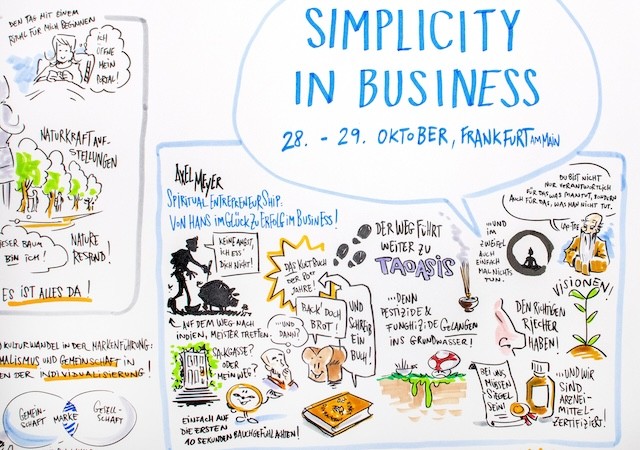 SIMPLICITY
IN BUSINESS
28. - 29. OKTOBER, FRANKFURT AM MAIN
DEN TAG MIT EINEM
RITUAL FÜR MICH BEGINNEN
ICH
ÖFFNE
MEIN
PORTAL!
NATURKRAFT AUF-
STELLUNGEN
DIESER BAUM
BIN ICH!
NATURE
RESPOND!
ES IST ALLES DA!
KULTURWANDEL IN DER MARKENFÜHRUNG:
MALISMUS UND GEMEINSCHAFT IN
EN DER INDIVIDUALISIERUNG!
GEMEIN-
SCHAFT
MARKE
GESELL-
SCHAFT
AXEL
MEYER
SPIRITUAL ENTREPRENEURSHIP:
VON HANS IM GLÜCK ZU ERFOLG IM BUSINESS!
KEINE ANGST,
ICH ESS'
DICH NICHT!
AUF DEM WEG NACH
INDIEN, MEISTER TREFFEN
SACKGASSE?
ODER
MEIN WEG?
EINFACH AUF
DIE ERSTEN
10 SEKUNDEN BAUCHGEFÜHL ACHTEN!
DAS KULTBUCH
DER 80ER
JAHRE!
...UND
DANN?
BACK' DOCH
BROT!
UND
SCHREIB
EIN
BUCH!
DER WEG FÜHRT
WEITER ZU
TAOASIS
...DENN
PESTIZIDE &
FUNGHIZIDE GELANGEN
INS GRUNDWASSER!
DU BIST NICHT
NUR VERANTWORTLICH
FÜR DAS WAS MAN TUT, SONDERN
AUCH FÜR DAS, WAS MAN NICHT TUT.
LAO-TSE
...UND
IM
ZWEIFEL
AUCH
EINFACH
MAL NICHTS
TUN.
VISIONEN!
DEN RICHTIGEN
RIECHER
HABEN!
BEI UNS
MÜSSEN
SIEGEL
SEIN!
...UND WIR
SIND
ARZNEI-
MITTEL-
ZERTIFIZIERT!